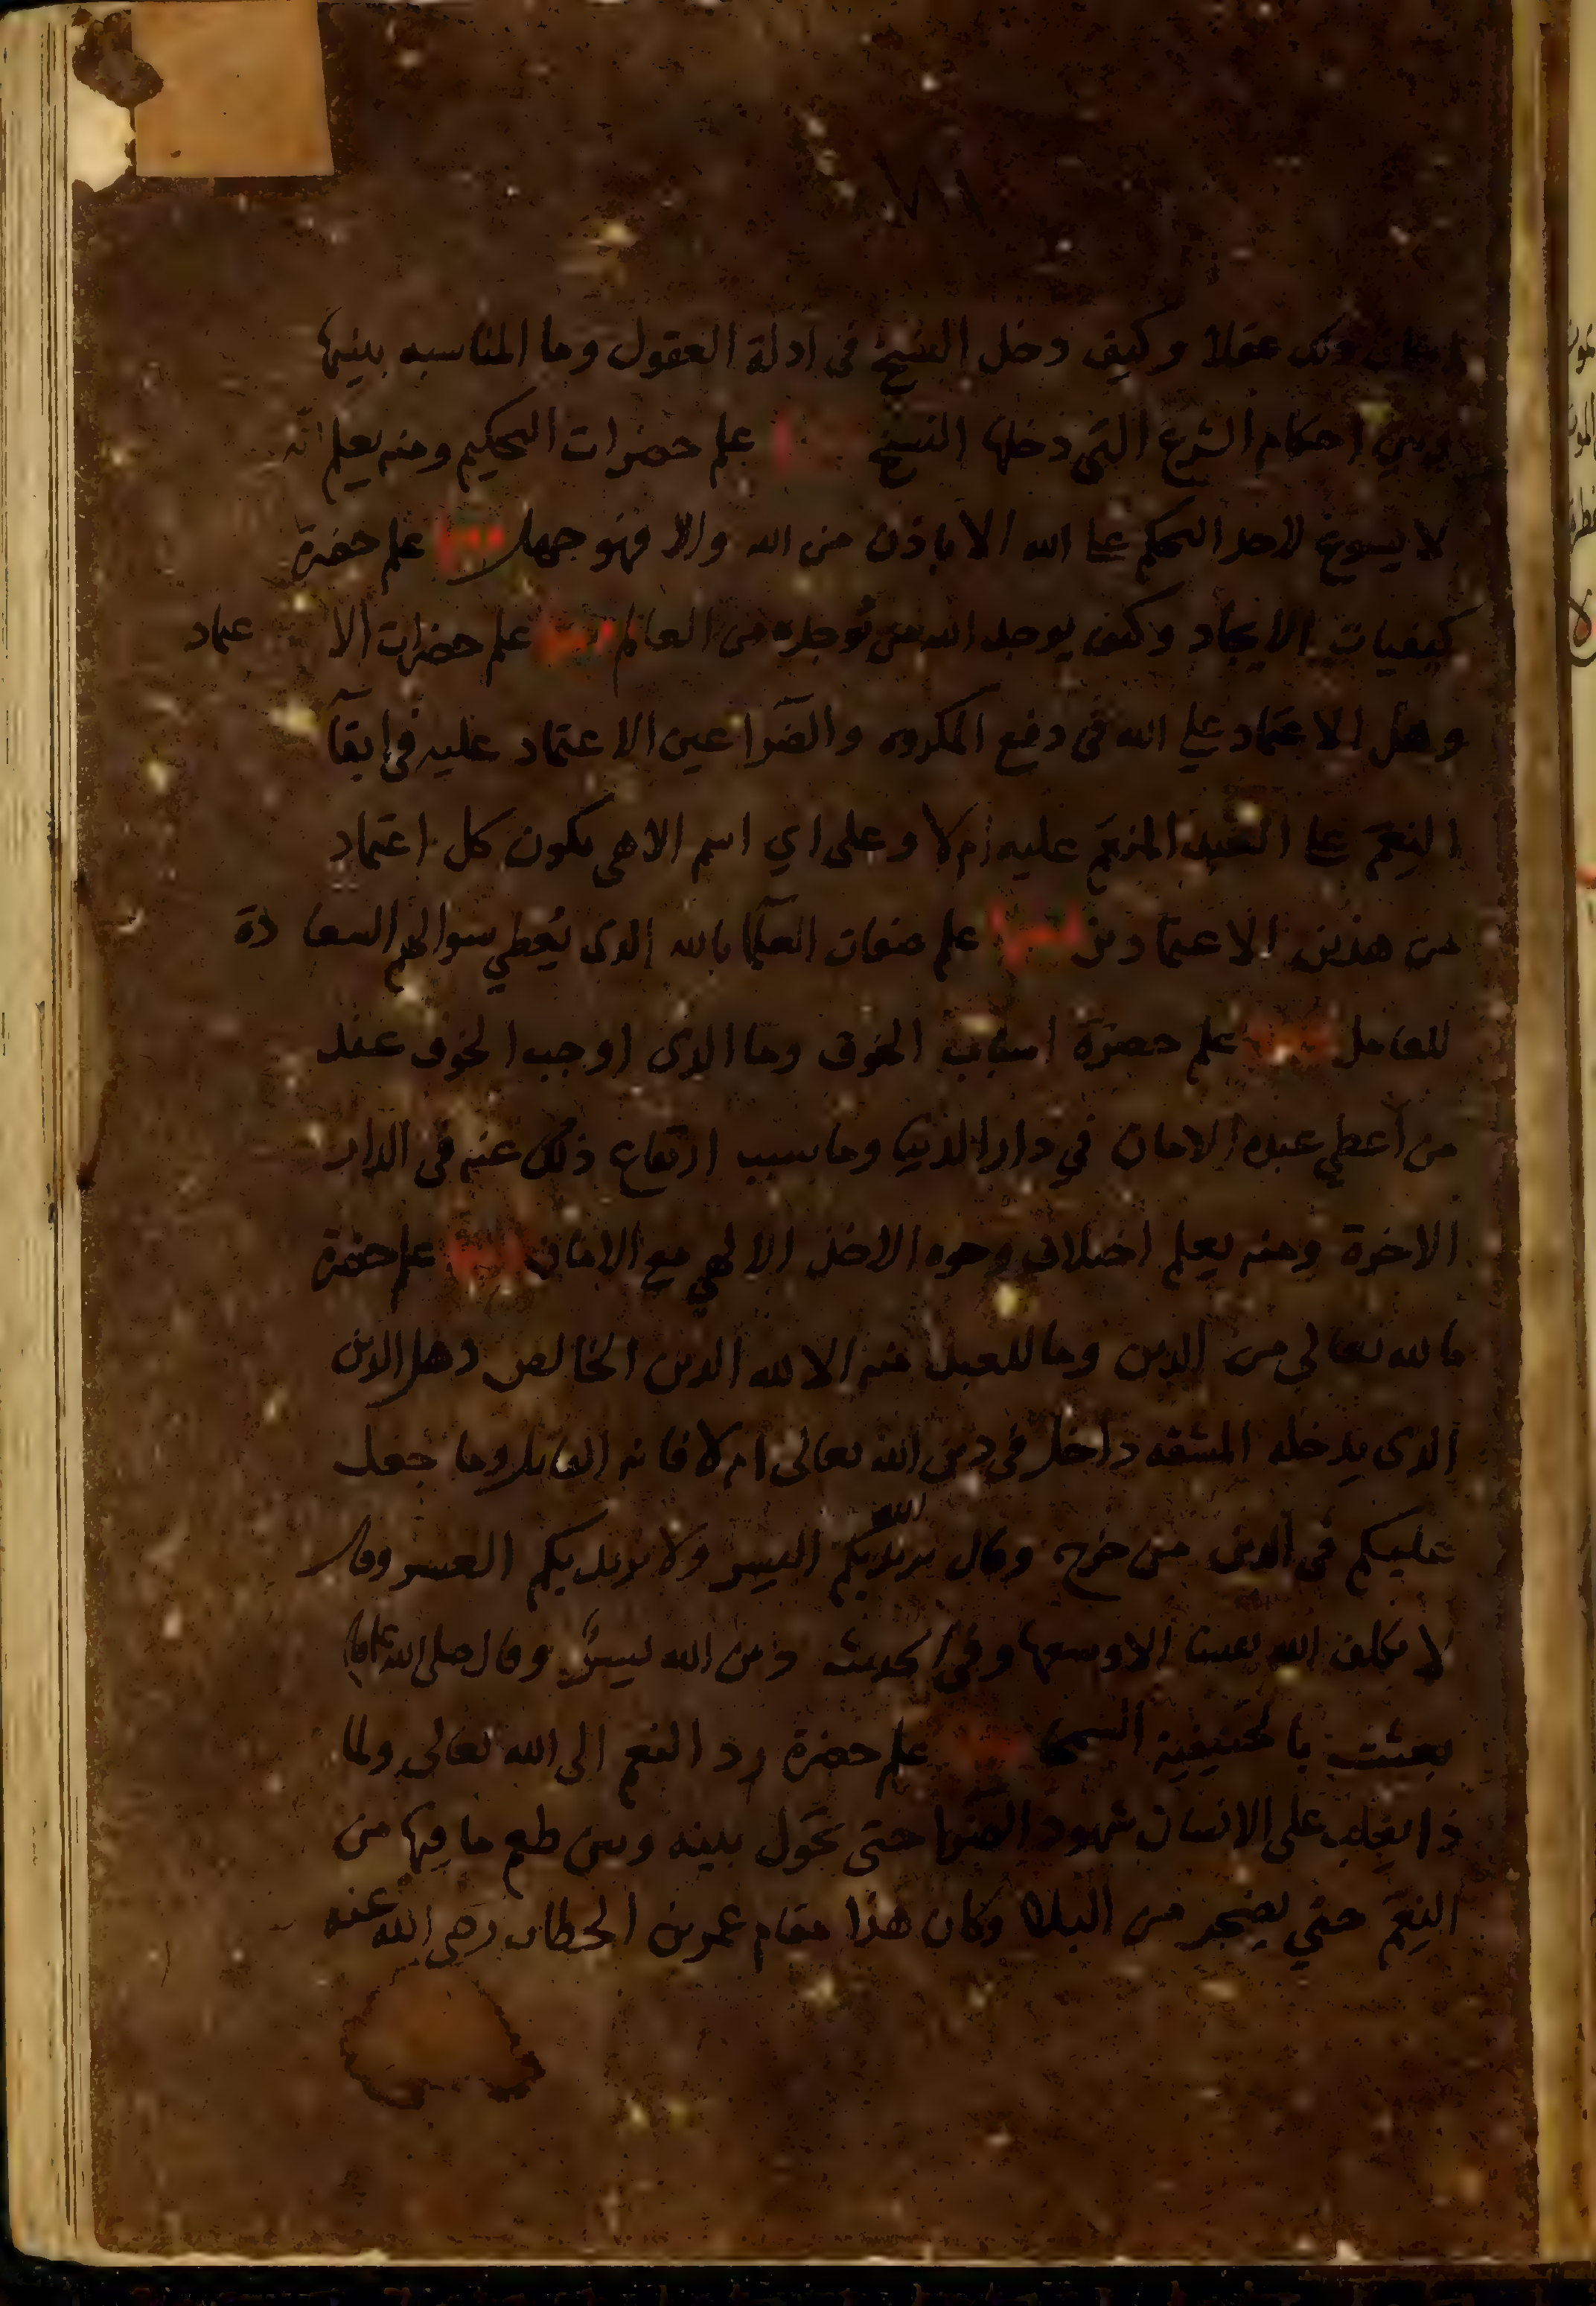 ذلك عقلا وكيف دخل النسخ في ادلة العقول وما المناسبه بينها
وبين احكام الشرع التي دخلها النسخ علم حضرات التحكيم ومنه يعلم انه
لا يسوغ لاحد التحكم على الله الا باذن من الله والا فهو جهل ومنها علم حضرة
كيفيات الايجاد وكيف يوجد الله من يوجده من العالم ومنها علم حضرات الاعتماد
وهل الاعتماد على الله في دفع المكروه والضرا عين الاعتماد عليه في ابقآ
النعم على العبد المنعم عليه ام لا وعلى اي اسم الاهي يكون كل اعتماد
من هذين الاعتمادين ومنها علم صفات العلمآ بالله الذي يعطي سوالهم السعادة
للعامل ومنها علم حضرة اسباب الخوف وما الذي اوجب الخوف عند
من أعطي عبده الامان في دار الدنيا وما سبب ارتفاع ذلك عنه في الدار
الاخرة ومنه يعلم اختلاف وجوه الاخذ الالهي مع الامان ومنها علم حضرة
ما لله تعالي من الدين وما للعبد منه الا لله الدين الخالص وهل الدين
الذي يدخله المشقه داخل في دين الله تعالى ام لا فانه القايل وما جعل
عليكم في الدين من حرج وقال يريد الله بكم اليسر ولا يريد بكم العسر وقال
لا يكلف الله نفسا الا وسعها وفي الحديث دين الله يسر وقال صلى الله عليه
بعثت بالحنيفية السمحا علم حضرة رد النعم الى الله تعالى ولما
ذا يغلب على الانسان شهود الضرا حتى تحول بينه وبين طعم ما فيها من
النعم حتي يضجر من البلا وكان هذا مقام عمر بن الخطاب رضي الله عنه